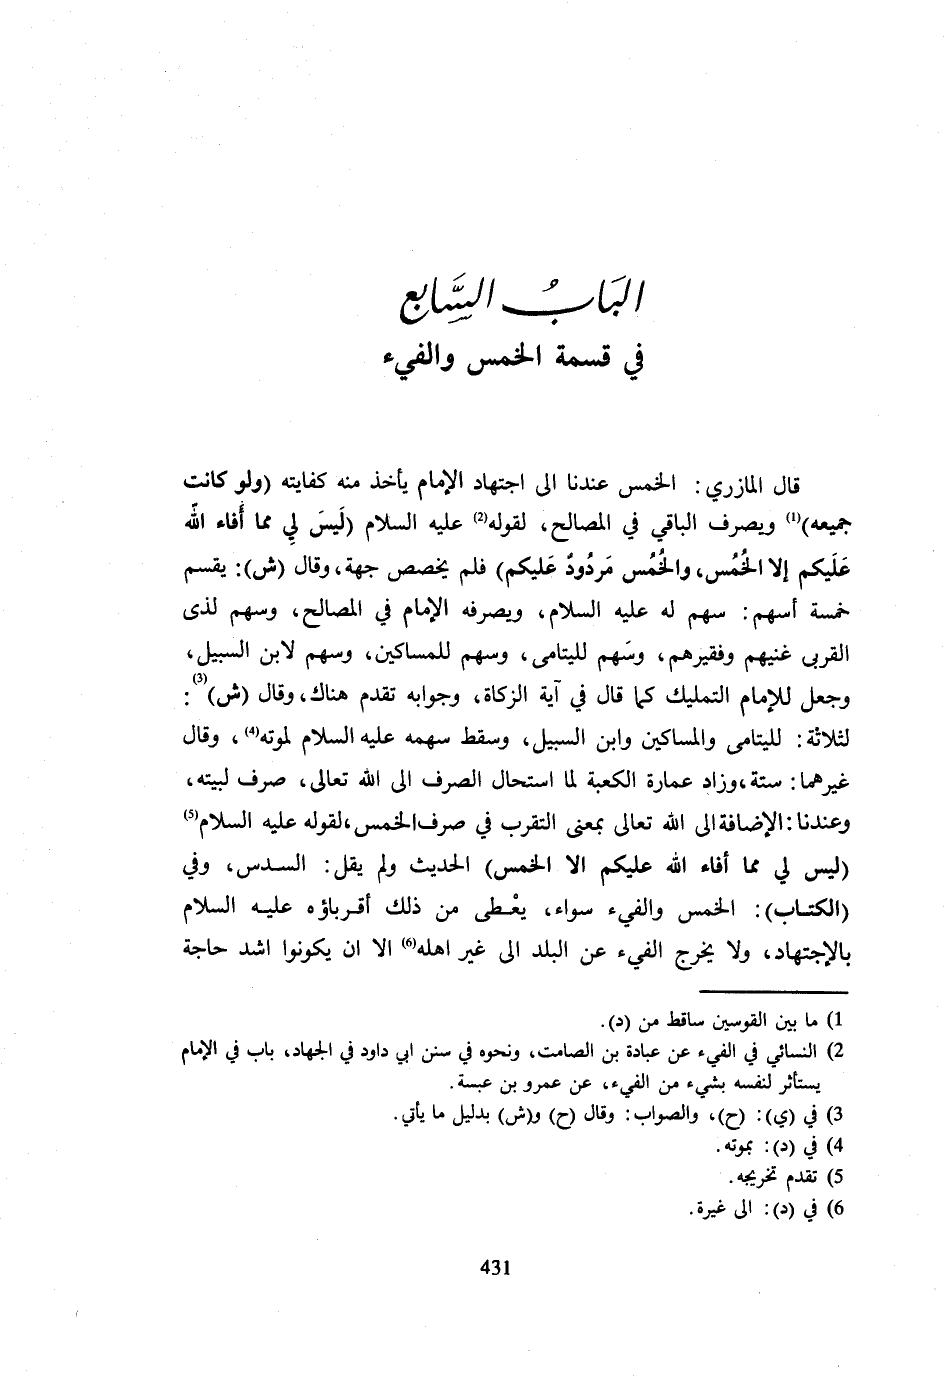 البَابُ السَّابع
في قسمة الخمس والفيء
قال المازري: الخمس عندنا الى اجتهاد الإمام يأخذ منه كفايته (ولو كانت
جميعه)(1) ويصرف الباقي في المصالح، لقوله(2) عليه السلام (لَيسَ لِي مما أَفاء اللَّه
عَلَيكم إلا الخُمُس، والخُمُس مَردُودٌ عَليكم) فلم يخصص جهة، وقال (ش): يقسم
خمسة أسهم: سهم له عليه السلام، ويصرفه الإمام في المصالح، وسهم لذى
القربى غنيهم وفقيرهم، وسَهم لليتامى، وسهم للمساكين، وسهم لابن السبيل،
وجعل للإمام التمليك كما قال في آية الزكاة، وجوابه تقدم هناك، وقال (ش)(3):
لثلاثة: لليتامى والمساكين وابن السبيل، وسقط سهمه عليه السلام لموته(4)، وقال
غيرهما: ستة، وزاد عمارة الكعبة لما استحال الصرف الى الله تعالى، صرف لبيته،
وعندنا: الإضافة الى الله تعالى بمعنى التقرب في صرف الخمس، لقوله عليه السلام(5)
(ليس لي مما أفاء الله عليكم الا الخمس) الحديث ولم يقل: السدس، وفي
(الكتاب): الخمس والفيء سواء، يعْطى من ذلك أقرباؤه عليه السلام
بالإجتهاد، ولا يخرج الفيء عن البلد الى غير اهله(6) الا ان يكونوا اشد حاجة
1) ما بين القوسين ساقط من (د).
2) النسائي في الفيء عن عبادة بن الصامت، ونحوه في سنن ابي داود في الجهاد، باب في الإمام
يستأثر لنفسه بشيء من الفيء، عن عمرو بن عبسة.
3) في (ي): (ح)، والصواب: وقال (ح) و(ش) بدليل ما يأتي.
4) في (د): بموته.
5) تقدم تخريجه.
6) في (د): الى غيرة.
431